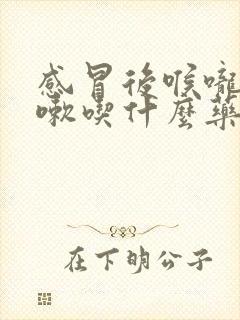 感冒後喉嚨
嗽喫什麼藥
在下明公子